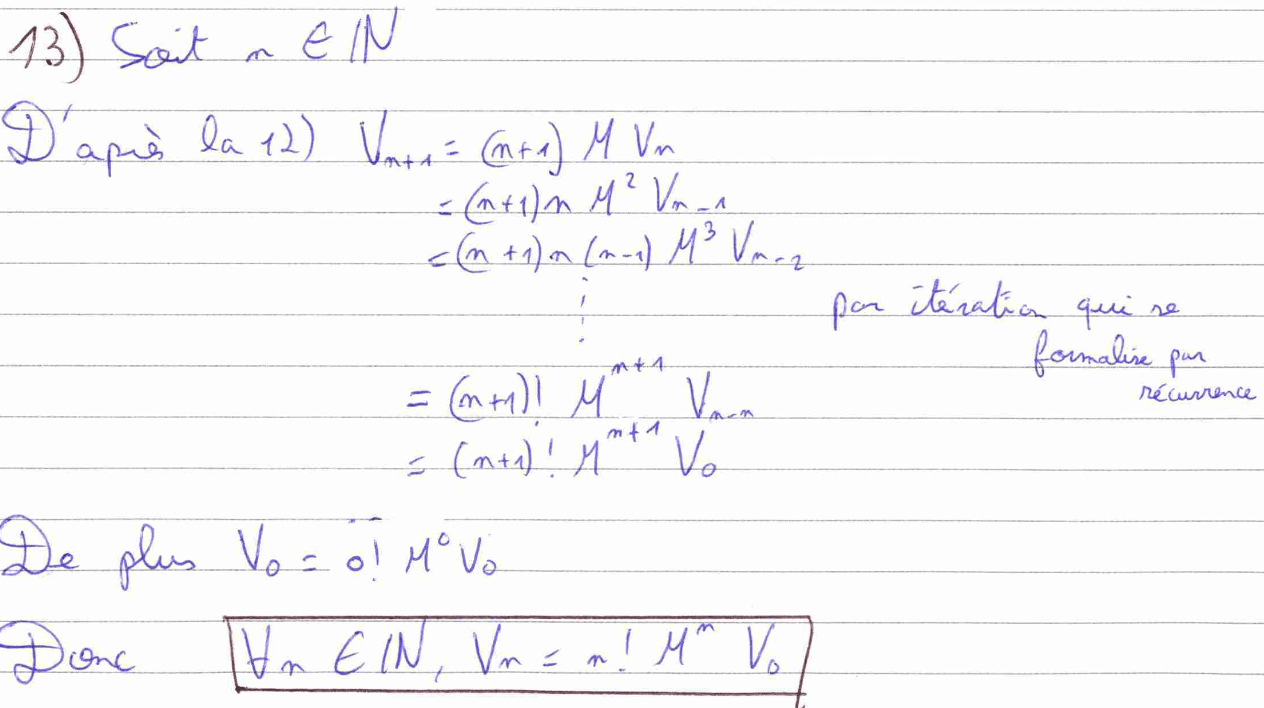 13) Soit n ∈ ℕ
D'après la 12) V_{n+1} = (n+1) M V_n
= (n+1)n M² V_{n-1}
= (n+1)n(n-1) M³ V_{n-2}
⋮
par itération qui se
formalise par
récurrence
= (n+1)! M^{n+1} V_{n-n}
= (n+1)! M^{n+1} V_0
De plus V_0 = 0! M⁰ V_0
Donc ∀n ∈ ℕ, V_n = n! M^n V_0